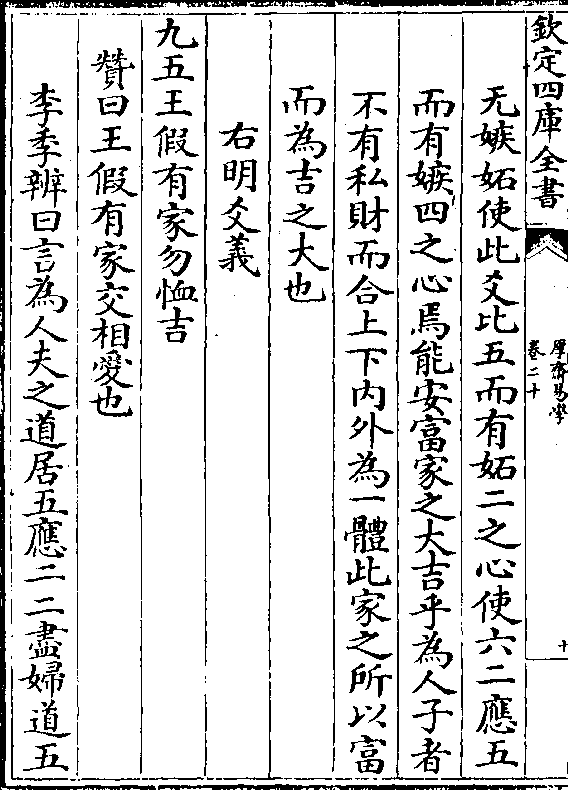 欽定四庫全書
厚齋易學
卷二十
十
无嫉妬使此爻比五而有妬二之心使六二應五
而有嫉四之心焉能安富家之大吉乎為人子者
不有私財而合上下內外為一體此家之所以富
而為吉之大也
右明爻義
九五王假有家勿恤吉
贊曰王假有家交相愛也
李季辨曰言為人夫之道居五應二二盡婦道五